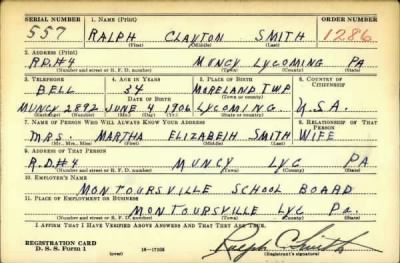 SERIAL NUMBER 1. NAME (Print) ORDER NUMBER
557 RALPH CLAYTON SMITH 1286
(First) (Middle) (Last)
2. ADDRESS (Print)
R.D.#4 MUNCY LYCOMING PA
(Number and street or R. F. D. number) (Town) (County) (State)
3. TELEPHONE 4. AGE IN YEARS 5. PLACE OF BIRTH 6. COUNTRY OF CITIZENSHIP
BELL 34 MORELAND TWP
DATE OF BIRTH (Town or county)
MUNCY 2892 JUNE 4 1906 LYCOMING U.S.A.
(Exchange) (Number) (Mo.) (Day) (Yr.) (State or country)
7. NAME OF PERSON WHO WILL ALWAYS KNOW YOUR ADDRESS 8. RELATIONSHIP OF THAT PERSON
MRS. MARTHA ELIZABEIH SMITH WIFE
(Mr., Mrs., Miss) (First) (Middle) (Last)
9. ADDRESS OF THAT PERSON
R.D.#4 MUNCY LYC PA
(Number and street or R. F. D. number) (Town) (County) (State)
10. EMPLOYER'S NAME
MONTOURSVILLE SCHOOL BOARD
11. PLACE OF EMPLOYMENT OR BUSINESS
MONTOURSVILLE LYC Pa.
(Number and street or R. F. D. number) (Town) (County) (State)
I AFFIRM THAT I HAVE VERIFIED ABOVE ANSWERS AND THAT THEY ARE TRUE.
REGISTRATION CARD
D. S. S. Form 1 16-17105 Ralph C Smith
(Registrant's signature)